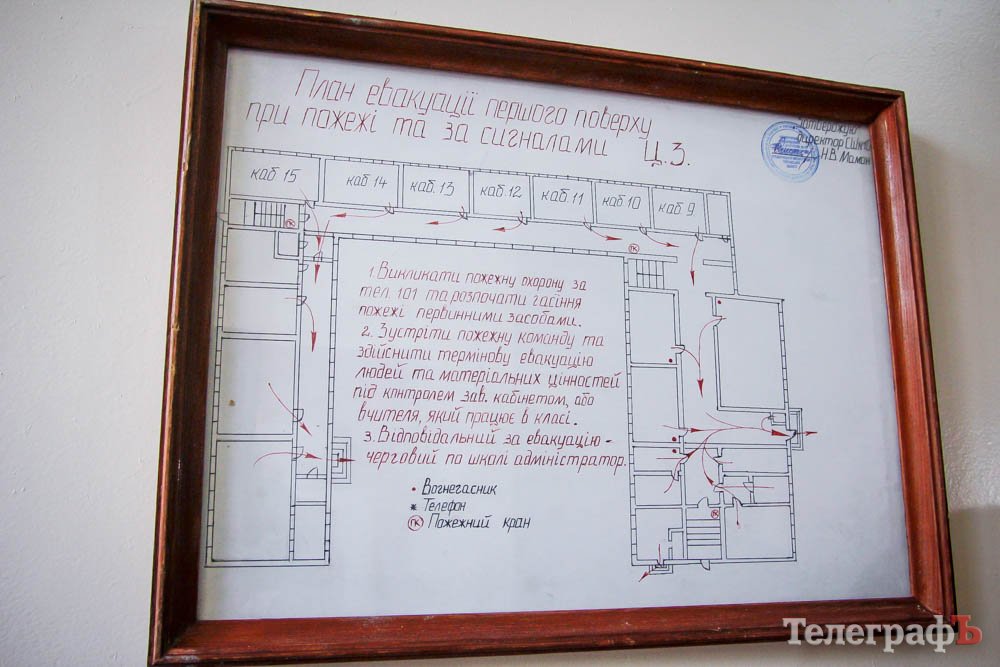 План евакуації першого поверху
при пожежі та за сигналами Ц.З.
Затверджую
директор
Н.В. Маман
каб 15
каб 14
каб. 13
каб. 12
каб. 11
каб 10
каб 9
ПК
ПК
1. Викликати пожежну охорону за
тел. 101 та розпочати гасіння
пожежі первинними засобами.
2. Зустріти пожежну команду та
здійснити термінову евакуацію
людей та матеріальних цінностей
під контролем зав. кабінетом, або
вчителя, який працює в класі.
3. Відповідальний за евакуацію -
черговий по школі адміністратор.
Вогнегасник
Телефон
ПК Пожежний кран
ПК
ТелеграфЪ